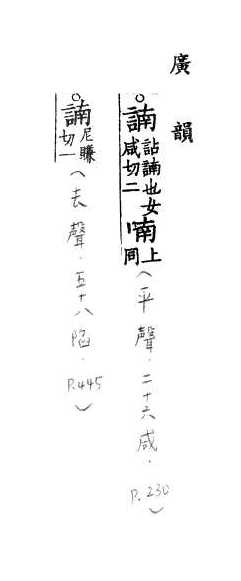 廣韻
○諵詀諵也女咸切二 喃上同(平聲.二十六咸.P.230)
○諵尼賺切一(去聲.五十八陷.P.445)